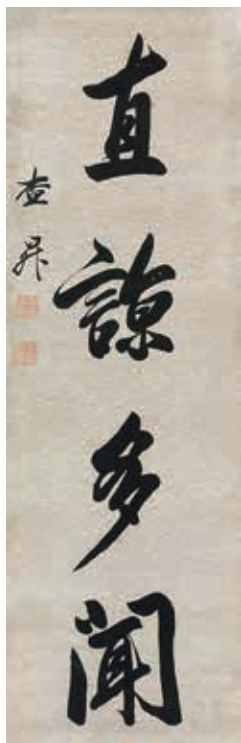 直諒多聞
查昇